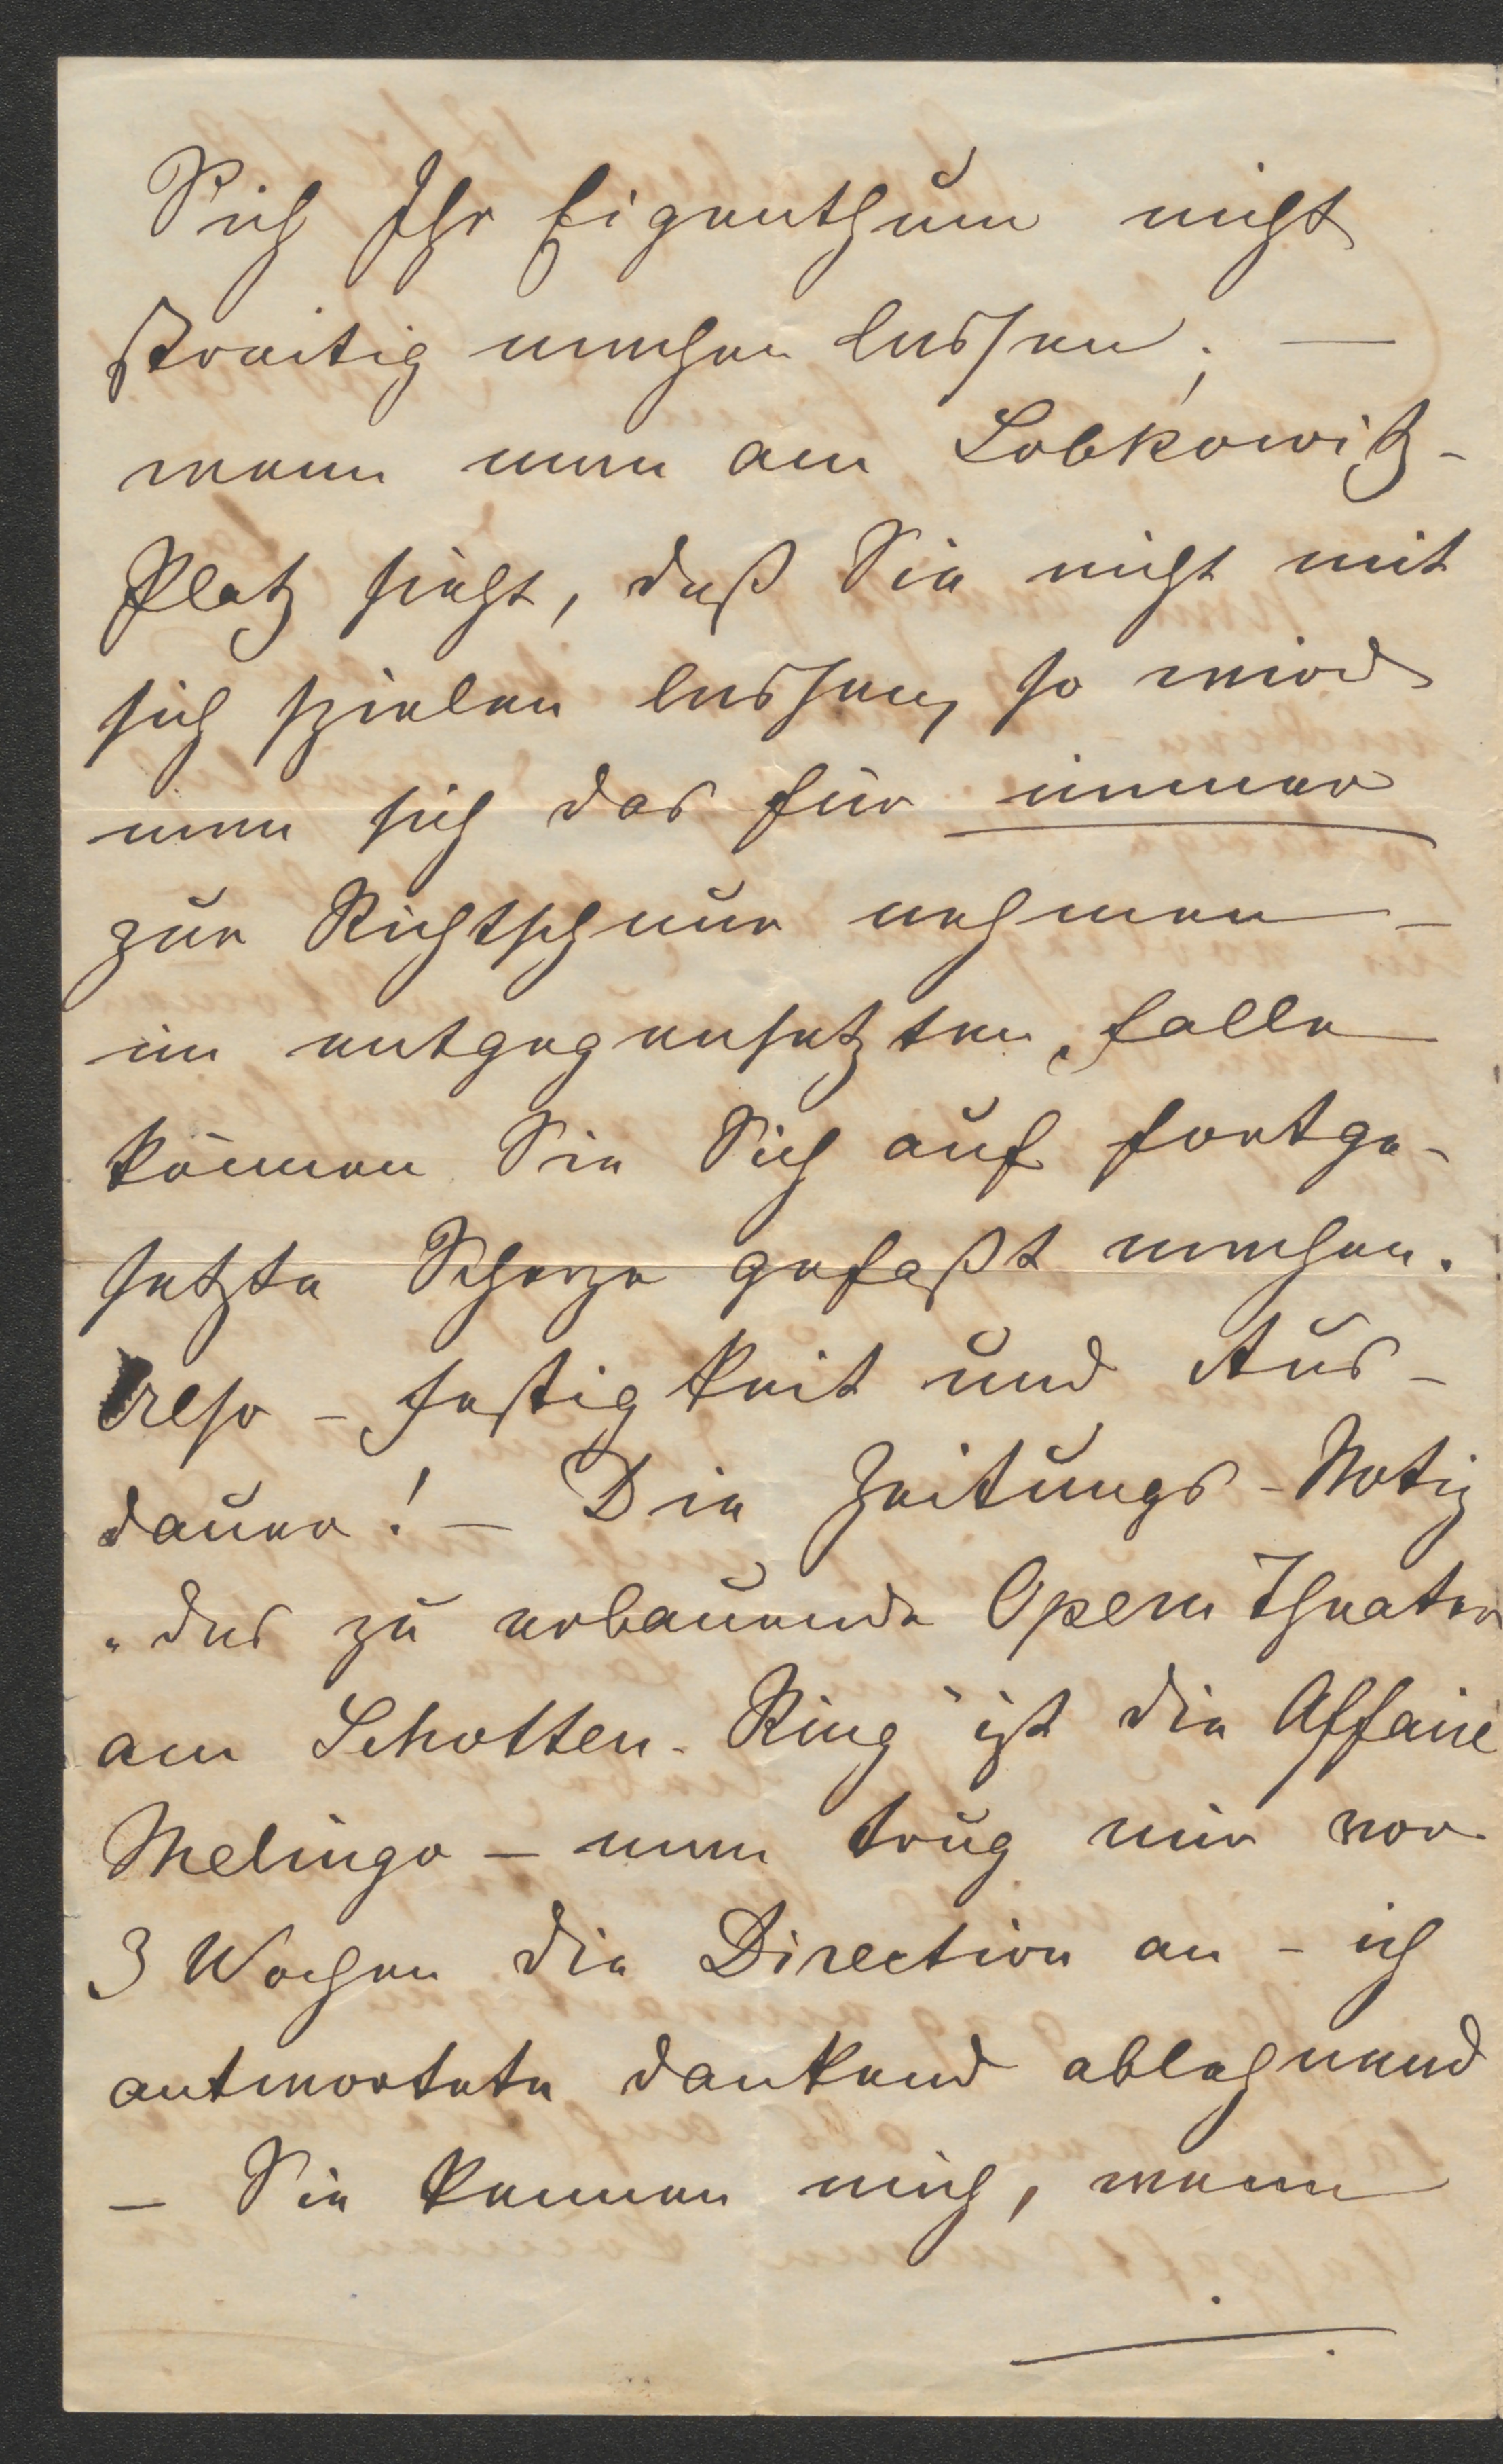 Sich Ihr Eigenthum nicht
streitig machen lassen; —
wenn man am Lobkowitz-
Platz sieht, daß Sie nicht mit
sich spielen lassen, so wird
man sich das für immer
zur Richtschnur nehmen —
im entgegensetzten Falle
können Sie Sich auf fortge-
setzte Scherze gefaßt machen.
Also — Festigkeit und Aus-
dauer! — Die Zeitungs-Notiz
„das zu erbauende Opern Theater
am Schotten-Ring" ist die Affaire
Melingo — man trug mir vor
3 Wochen die Direction an — ich
antwortete dankend ablehnend
— Sie kennen mich, wenn